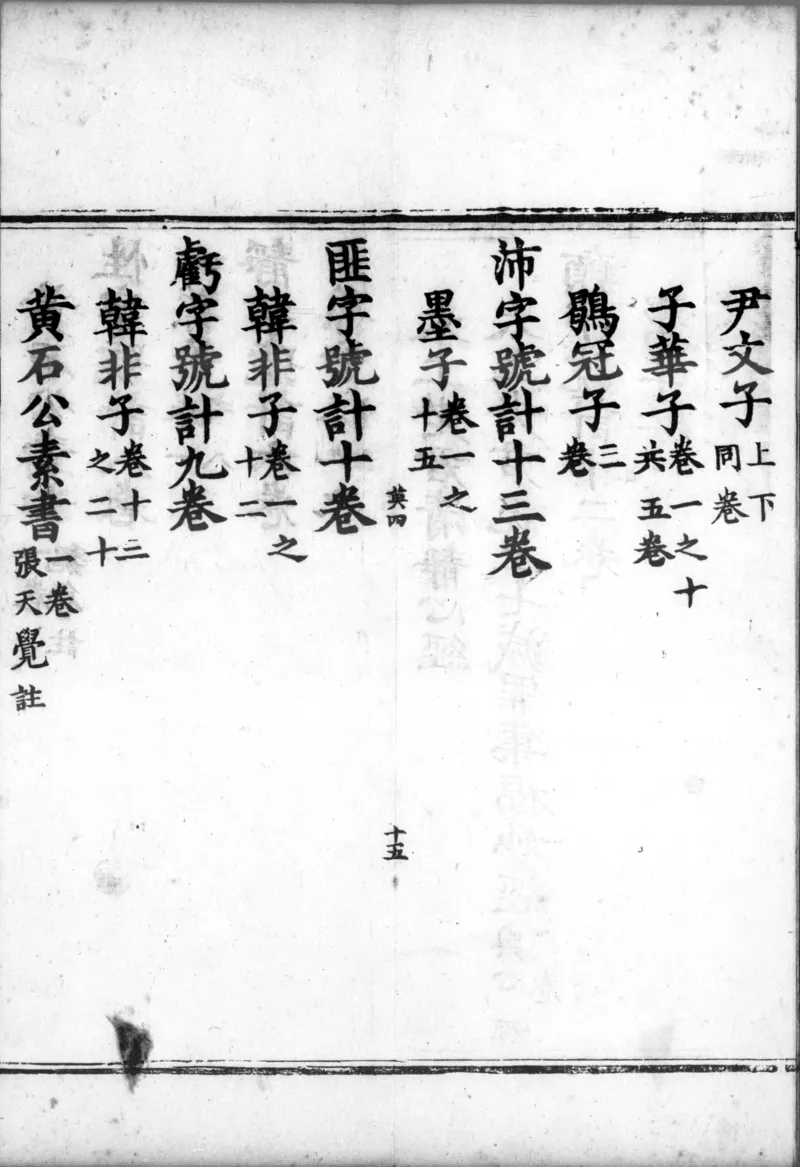 尹文子上下同卷
子華子卷一之十共五卷
鶡冠子三卷
沛字號計十三卷
墨子卷一之十五
英四
十五
匪字號計十卷
韓非子卷一之十二
虧字號計九卷
韓非子卷十三之二十
黃石公素書一卷張天覺註